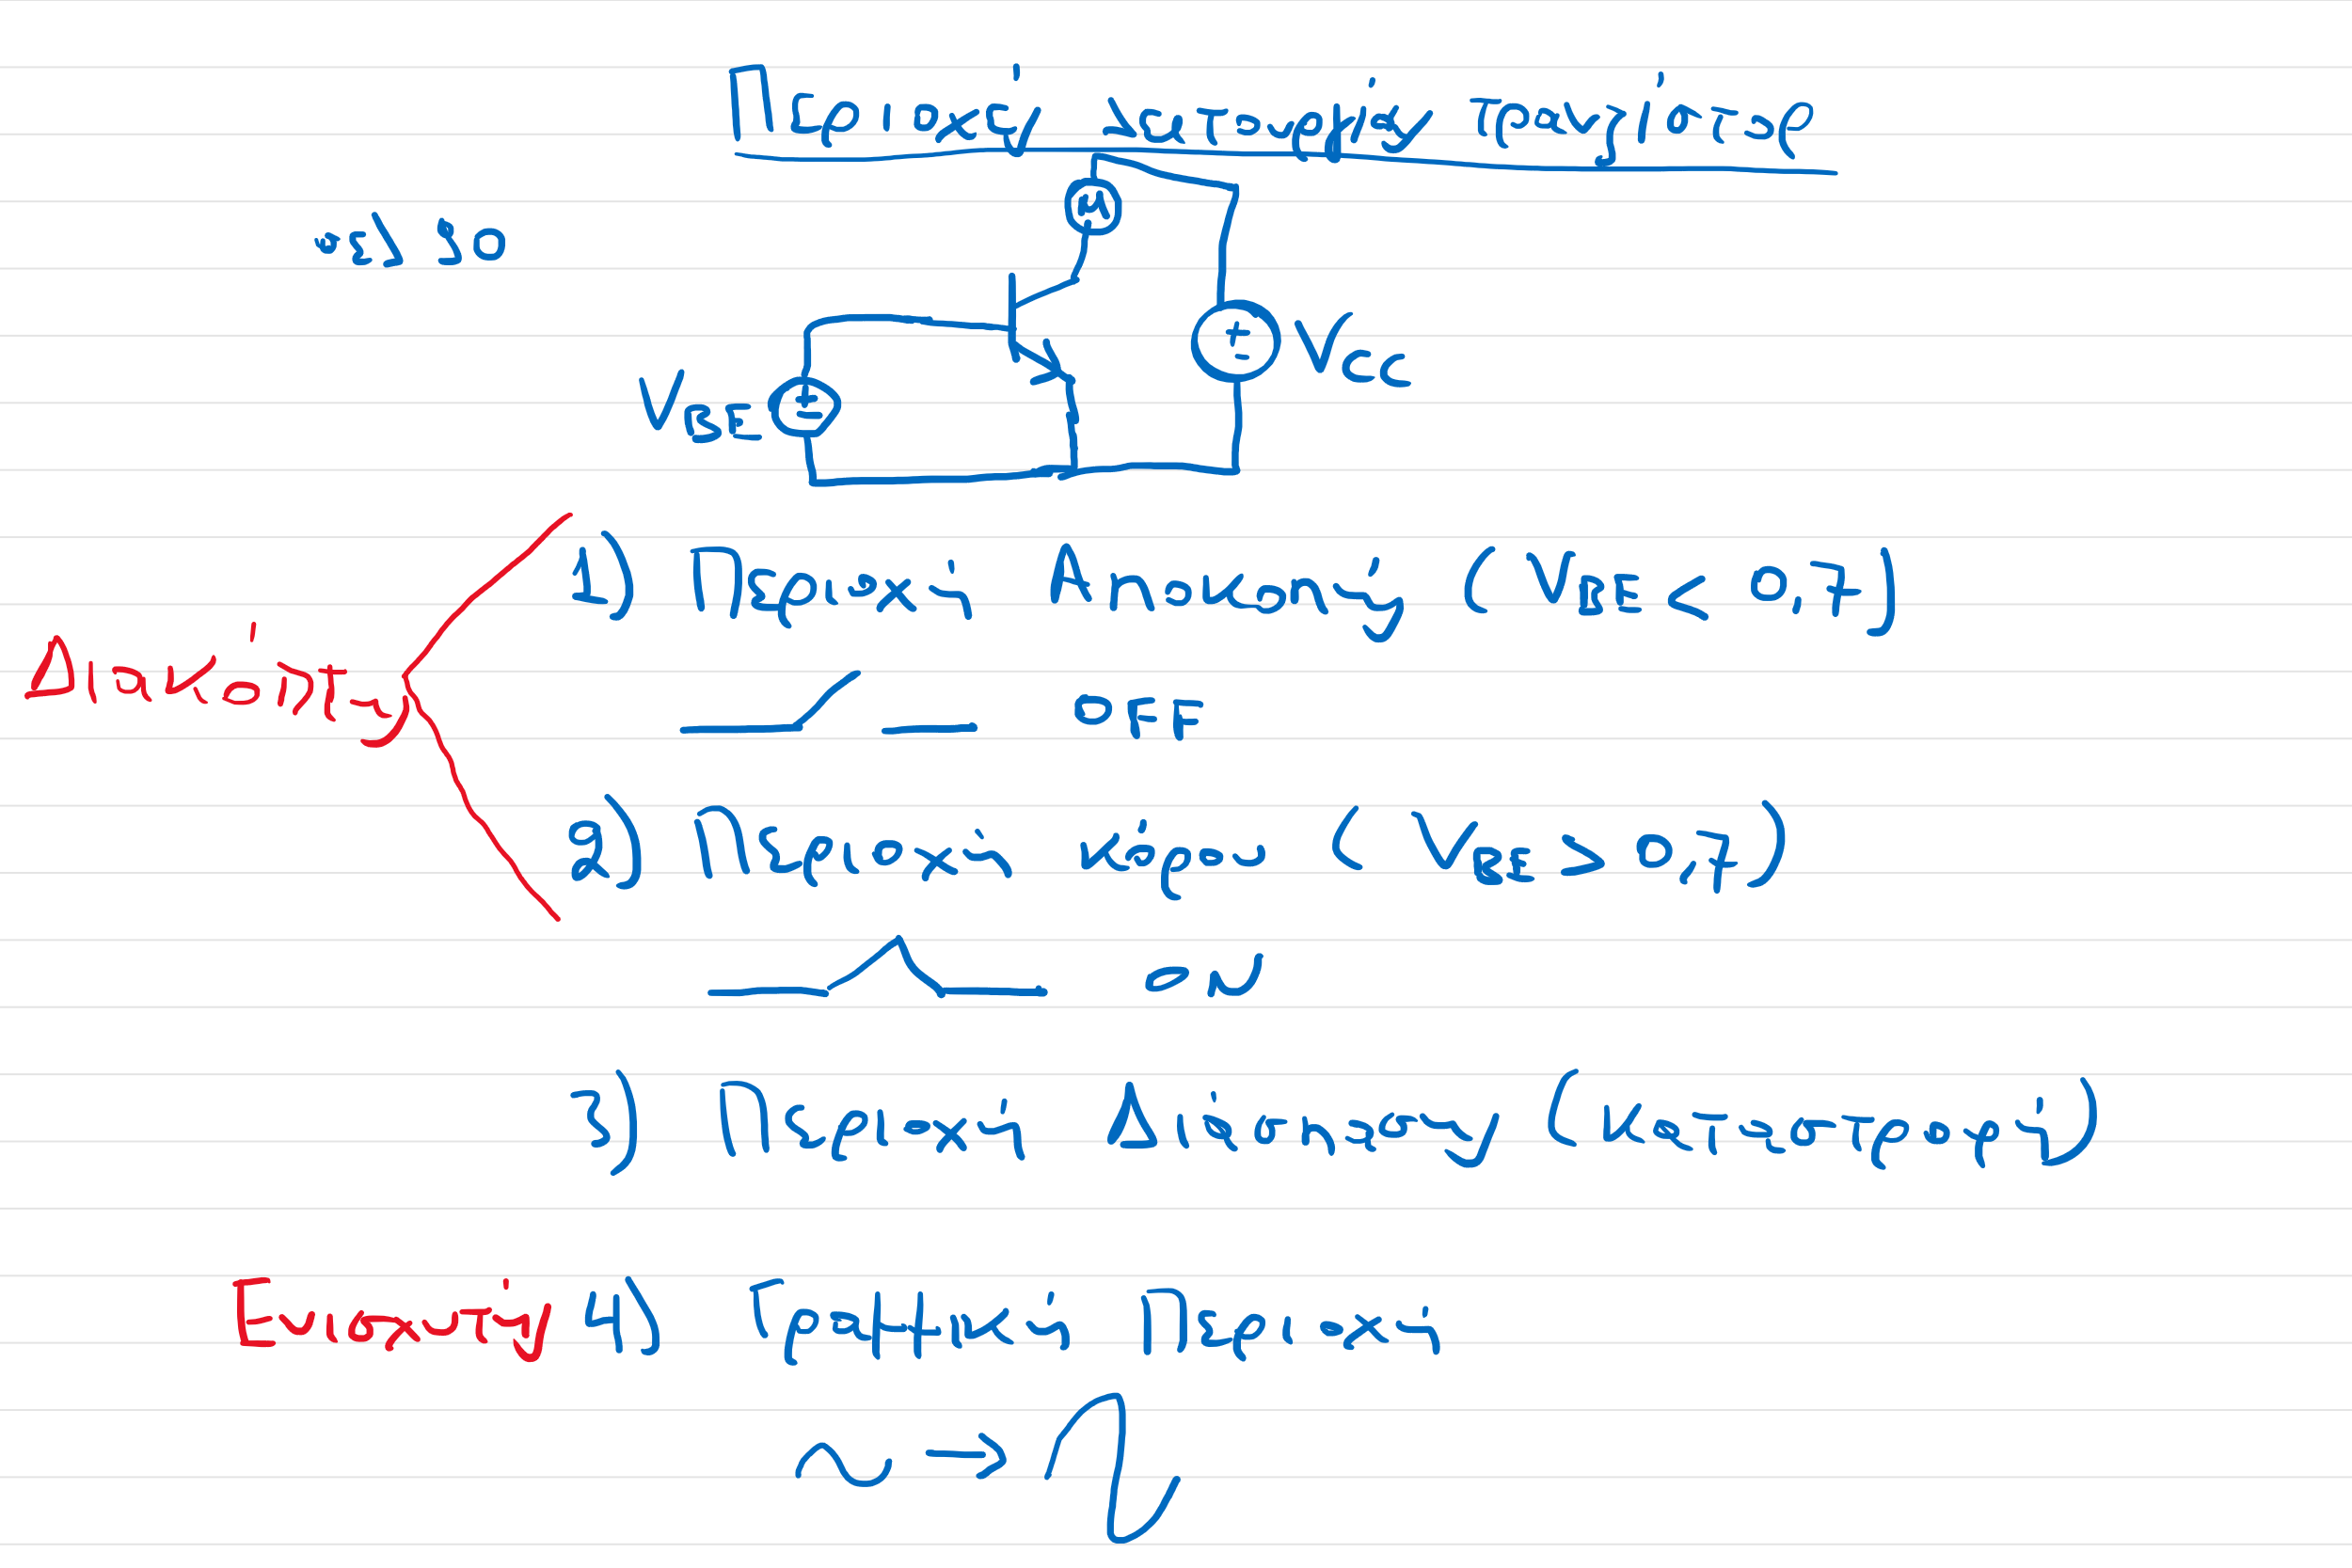 Περιοχές λειτουργίας τρανζίστορ
σελ 90
M
V_BE
V_CC
1) Περιοχή Αποκοπής (V_BE < 0,7)
Διακόπτης
OFF
2) Περιοχή κόρου (V_BE > 0,7)
ON
3) Περιοχή Διάσπασης (Καταστροφή)
Ενισχυτής 4) Γραμμική Περιοχή